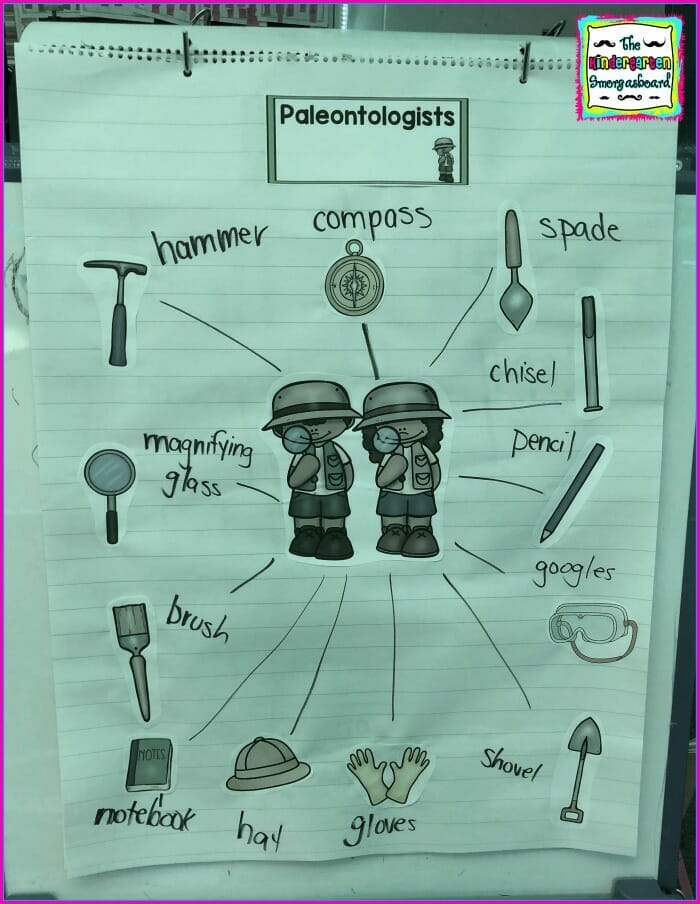 The
Kindergarten
Smorgasboard
Paleontologists
hammer
compass
spade
chisel
magnifying
glass
pencil
googles
brush
NOTES
notebook
hay
gloves
shovel